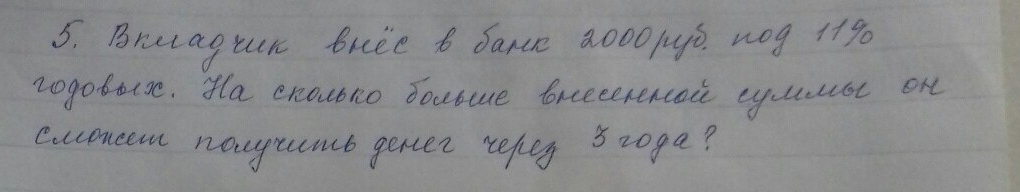 5. Вкладчик внёс в банк 2000 руб. под 11%
годовых. На сколько больше внесенной суммы он
сможет получить денег через 3 года?